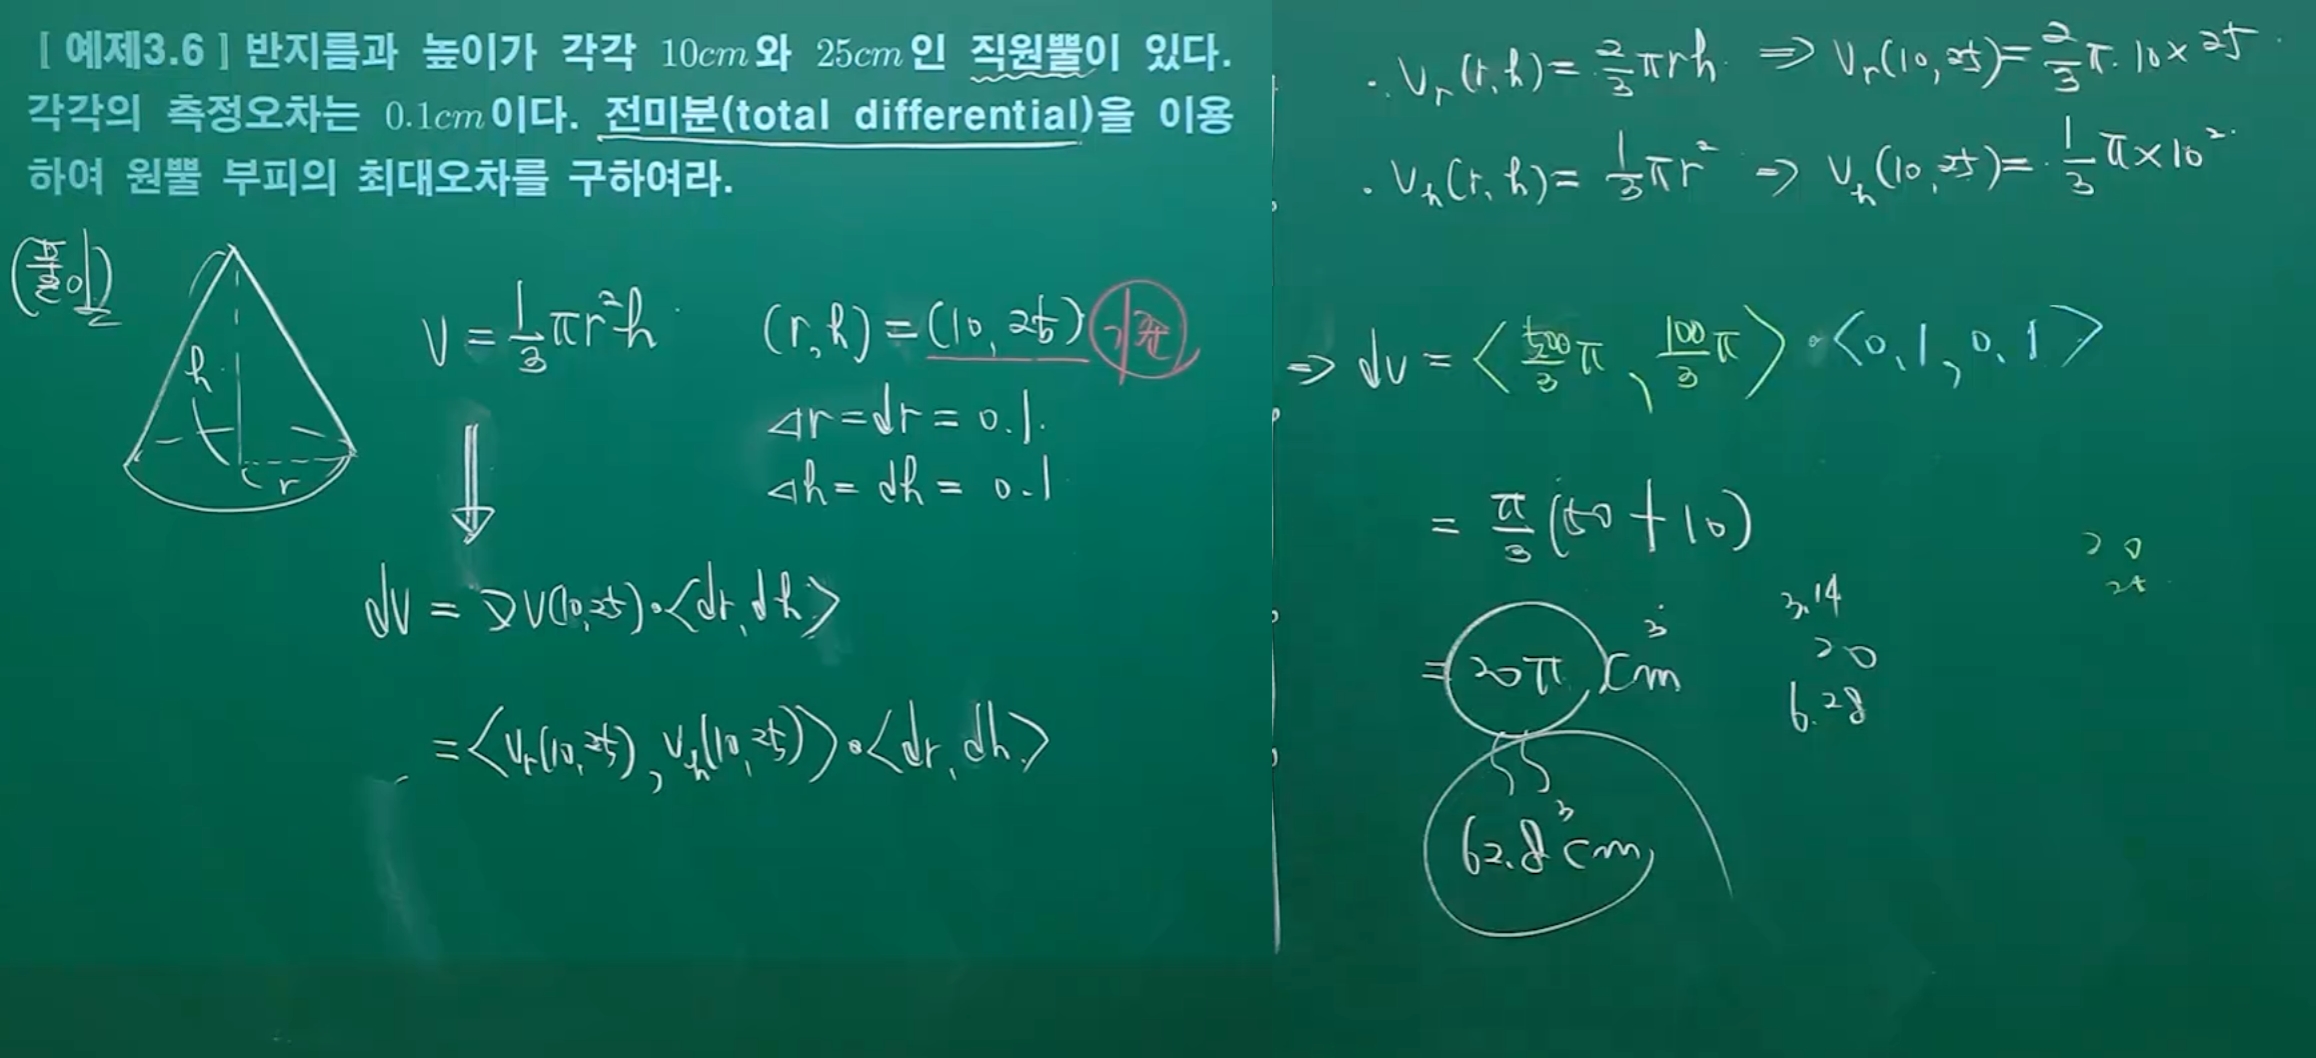 [ 예제3.6 ] 반지름과 높이가 각각 10cm와 25cm인 직원뿔이 있다.
각각의 측정오차는 0.1cm이다. 전미분(total differential)을 이용
하여 원뿔 부피의 최대오차를 구하여라.
(풀이)
h
r
V = 1/3 πr²h
(r, h) = (10, 25) 기준
△r = dr = 0.1
△h = dh = 0.1
dV = ▽V(10,25)•<dr, dh>
= <Vr(10,25), Vh(10,25)>•<dr, dh>
· Vr(r, h) = 2/3 πrh ⇒ Vr(10, 25) = 2/3 π·10×25
· Vh(r, h) = 1/3 πr² ⇒ Vh(10, 25) = 1/3 π×10²
⇒ dV = <500/3 π, 100/3 π>•<0.1, 0.1>
= π/3 (50+10)
20
25
= 20π cm³
3.14
20
6.28
62.8 cm³